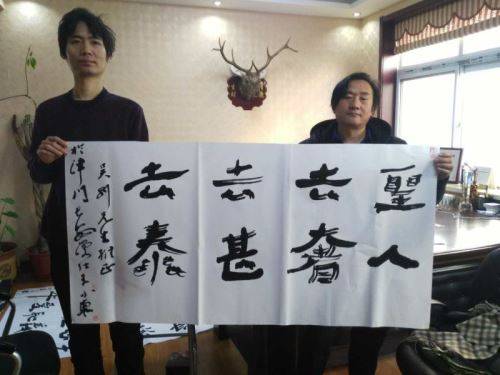 聖人
去奢
去甚
去泰
吴刚先生雅正
於津門